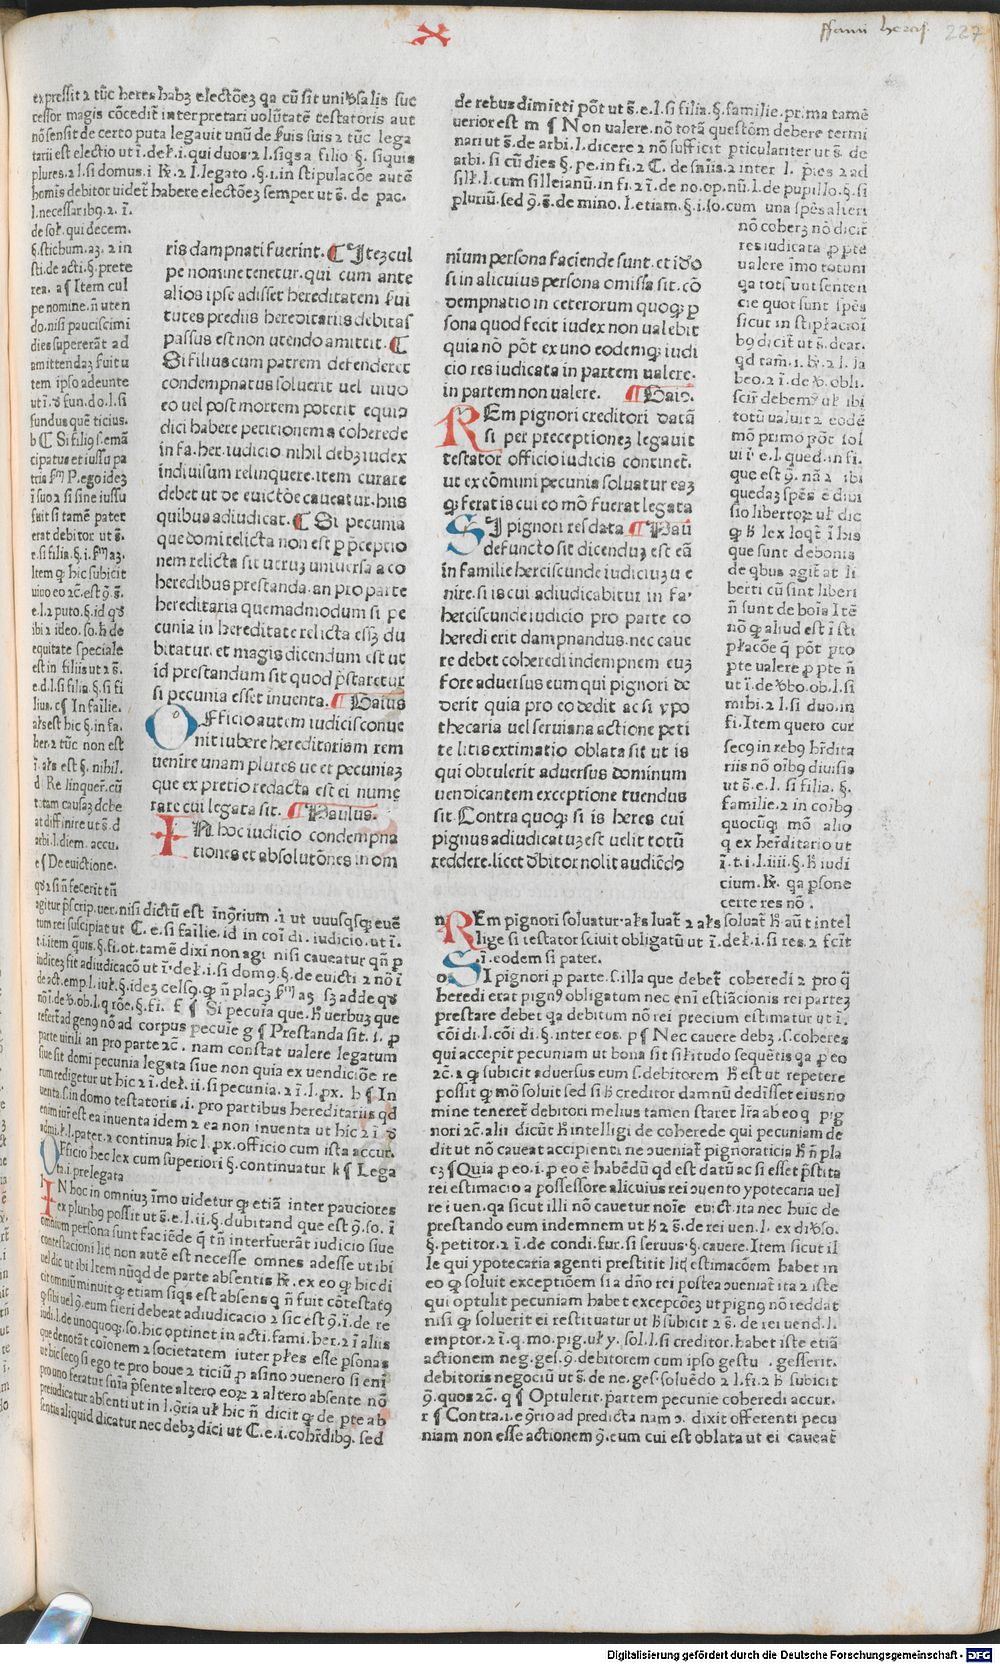 ffami hercis. 227
X
expressit ⁊ tūc heres habꝫ electōeꝫ qa cū sit uniꝟsalis suc
cessor magis cōcedit̄ interpretari volūtatē testatoris aut
nō sensit de certo puta legavit unū de suis ⁊ tūc lega
tarii est electio ut ī. del. i. qui duos ⁊ l. si qs a filio §. si quis
plures. ⁊ l. si domus. i ꝶ. ⁊ l. legato .§. i. in stipulacōe autē
homīs debitor uidet̄ habere electōeꝫ semper ut s̄. de pac.
l. necessaribꝯ. ⁊ ī.
de sol. qui decem.
§. stichum. aꝫ. ⁊ in
sti. de acti. §. prete
rea. a ¶ Item cul
pe nomine. n̄ uten
do. nisi pauciscimi
dies supererāt ad
amittendaꝫ fuit u
tem ipso adeunte
ut ī. ꝺ fun. do. l. si
fundus quē ticius.
b ¶ Si filiꝯ s. emā
cipatus et iussu pa
tris
ī suo ⁊ si sine iussu
suit si tamē pater
erat debitor ut s̄.
e. si filia. §. i.
Item ꝙ hic subicit
uiuo eo ⁊c̄. est ꝯ. s̄.
e. l. ⁊ puto. §. id qꝺ
ibi ⁊ ideo. so. h̄ de
equitate speciale
est in filiis ut ⁊ s̄.
e. d. l. si filia. §. si fi
lius. c ¶ In failie.
als est hic §. in fa.
her. ⁊ tūc non est
ī. als est §. nihil.
d Relinquer̄. cū
totam causaꝫ debe
at diffinire ut s̄. d
arbi. l. diem. accu.
e ¶ De euictione.
qꝺ ⁊ si n̄ fecerit tū
agitur p̄scrip. uer. nisi dictū est in ꝯrium. ī ut uuusqsqꝫ euē
tum rei suscipiat ut C. e. si failie. id in coī di. iudicio. ut ī.
t. i. item quis. §. fi. ot. tamē dixi non agi nisi caueatur qn̄ ꝑ
iudiceꝫ sit adiudicacō ut ī. del. i. si domꝯ. §. de euicti. ⁊ nō ī
de act. emp. l. iul. §. ideꝫ celsꝯ. ꝙ n̄ placꝫ aꝫ sꝫ adde qꝺ
nō ī. de ꝟ. ob. l. q rōe. §. fi. f ¶ Si pecuia que. h̄ uerbuꝫ que
refert̄ ad genꝯ nō ad corpus pecuīe g ¶ Prestanda sit. s. ꝑ
parte uirili an pro parte ⁊c̄. nam constat valere legatum
siue sit domi pecunia legata siue non quia ex uendiciōe re
rum redigetur ut hic ⁊ ī. del. ii. si pecunia. ⁊ ī. l. px. h ¶ In
uenta. s. in domo testatoris. i. pro partibus hereditariis qd
enim iur̄ est ea inventa idem ⁊ ea non inventa ut hic ⁊ ī ꝺ
admi. l. l. pater. ⁊ continua hic l. px. officio cum ista accur.
OFficio hec lex cum superiori §. continuatur k ¶ Lega
ta. i. prelegata
IN hoc in omniuꝫ īmo uidetur ꝙ etiā inter pauciores
ex pluribꝯ possit ut s̄. e. l. ii. §. dubitand que est ꝯ. so. ī
omnium persona sunt faciēde q̄ tn̄ interfuerāt iudicio siue
contestacioni lit̄ non autē est necesse omnes adesse ut ibi
uel dic ut ibi Item nūqd de parte absentis ꝶ. ex eo ꝙ hic di
cit omniū minuit ꝙ etiam siqs est absens q n̄ fuit cōtestatꝯ
ꝯ sibi uel ꝯ. eum fieri debeat adiudicacio ⁊ sic est ꝯ. ī. de re
iudi. l. de unoquoꝙ. so. hic optinet in acti. fami. her. ⁊ ī aliis
que denotāt coīonem ⁊ societatem iuter ples esse psonas
ut hic secꝯ si ego te pro boue ⁊ ticiū ꝑ asino ꝯuenero si enī
pro uno feratur sn̄ia p̄sente altero eoꝝ ⁊ altero absente nō
preiudicatur absenti ut in l. ꝯria ul hic n̄ dicit ꝙ de pte ab
sentis aliquid dicatur nec debꝫ dici ut C. e. i. cohr̄dibꝯ. sed
ris dampnati fuerint. ¶ Iteꝫ cul
pe nomine tenetur. qui cum ante
alios ipse adisset hereditatem fui
tutes prediis hereditariis debitas
passus est non utendo amittit. ¶
Si filius cum patrem defenderet
condempnatus soluerit uel uiuo
eo uel post mortem poterit equiꝫ
dici habere petitionem a coherede
in fa. her. iudicio nihil debꝫ iudex
indiuisum relinquere. item curare
debet ut de euictōe caueatur. hiis
quibus adiudicat. ¶ Si pecunia
que domi relicta non est ꝑ p̄ceptio
nem relicta sit utruꝫ uniuersa a co
heredibus prestanda. an pro parte
hereditaria quemadmodum si pe
cunia in hereditate relicta eꝫ du
bitatur. et magis dicendum est ut
id prestandum sit quod p̄staretur
si pecunia esset inuenta. ¶ Gaius
OFficio autem iudicis conue
nit iubere hereditariam rem
uenire unam plures ue et pecuniaꝫ
que ex pretio redacta est ei nume
rare cui legata sit. ¶ Paulus.
IN hoc iudicio condempna
tiones et absolutōnes in om
de rebus dimitti pōt ut s̄. e. l. si filia. §. familie. pr. ma tamē
uerior est m ¶ Non valere. nō totā questōm debere termi
nari ut s̄. de arbi. l. dicere ⁊ nō sufficit ꝑticulariter ut s̄. de
arbi. si cū dies §. pe. in fi. ⁊ C. de sn̄iis. ⁊ inter l. pies ⁊ ad
sill. l. cum silleianū. in fi. ⁊ ī. de no. op. nū. l. de pupillo. §. si
pluriū. sed ꝯ. s̄. de mino. l. etiam. §. i. so. cum una spēs alteri
nō coherꝫ nō dicit̄
res iudicata ꝑ pte
ualere īmo totum
qa tot sunt senten
cie quot sunt spēs
sicut in stiplacioi
bꝯ dicit̄ ut s̄. de ar.
qd tam. i. ꝶ. ⁊ l. la
beo. ⁊ ī. de ꝟ. obli.
scir̄ debemꝯ ul ibi
totū valuit ⁊ eodē
mō primo pōt sol
ui ī e. l. qued. in fi.
que est ꝯ. nā ⁊ ibi
quedaꝫ spēs ē diui
sio libertoꝝ ul dic
ꝙ h̄ lex loqt̄ ī hiis
que sunt de bonis
de qbus agit̄ at li
berti cū sint liberi
n̄ sunt de bois Itē
nō ꝙ aliud est ī sti
placōe q̄ pōt pro
pte ualere ꝑ pte n̄
ut ī. de ꝟbo. ob. l. si
mihi. ⁊ l. si duo. in
fi. Item quero cur
secꝯ in rebꝯ hr̄dita
riis nō oībꝯ diuisis
ut s̄. e. l. si filia. §.
familie. ⁊ in coībꝯ
quocūꝙ mō alio
q ex hr̄ditario ut
ī. t. i. l. iiii. §. h̄ iudi
cium. ꝶ. qa psone
certe res nō.
nium persona faciende sunt. et iꝺo
si in alicuius persona omissa sit. cō
dempnatio in ceterorum quoqꝫ ꝑ
sona quod fecit iudex non ualebit
quia nō pōt ex uno eodemqꝫ iudi
cio res iudicata in partem ualere.
in partem non valere. ¶ Gaiꝯ.
REm pignori creditori datā
si per preceptioneꝫ legauit
testator officio iudicis continet̄.
ut ex cōmuni pecunia soluatur eaꝫ
qꝫ ferat is cui eo mō fuerat legata
SI pignori res data ¶ Pau
defuncto sit dicenduꝫ est eā
in familie herciscunde iudiciuꝫ u e
nire. si is cui adiudicabitur in fa.
herciscunde iudicio pro parte co
heredi erit dampnandus. nec caue
re debet coheredi indempnem euꝫ
fore aduersus eum qui pignori de
derit quia pro eo dedit ac si ypo
thecaria uel seruiana actione peti
te litis extimatio oblata sit ut is
qui obtulerit aduersus dominum
uendicantem exceptione tuendus
sit. Contra quoqꝫ si is heres cui
pignus adiudicatuꝫ est uelit totū
reddere. licet dꝟitor nolit audiēdꝯ
n REm pignori soluatur. als luat̄ ⁊ als soluat̄ h̄ aūt intel
lige si testator sciuit obligatū ut ī. del. i. si res. ⁊ fcit
ī. eodem si pater.
o SI pignori ꝑ parte. s. illa que debet̄ coheredi ⁊ pro q̄
heredi erat pignꝯ obligatum nec enī estiācionis rei parteꝫ
prestare debet qa debitum nō rei precium estimatur ut ī.
cōi di. l. cōi di. §. inter eos. p ¶ Nec cauere debꝫ. s. coheres
qui accepit pecuniam ut bona sit silitudo sequētis qa ꝑ eo
⁊c̄. ⁊ ꝙ subicit aduersus eum s. debitorem h̄ est ut repetere
possit ꝙ mō soluit sed si h̄ creditor damnū dedisset eius no
mine teneret̄ debitori melius tamen staret lr̄a ab eo ꝙ pig
nori ⁊c̄. alii dicūt h̄ intelligi de coherede qui pecuniam de
dit ut nō caueat accipienti ne ꝯueniat̄ pignoraticia h̄ n̄ pla
cꝫ ¶ Quia ꝑ eo. i. ꝑ eo ē habēdū qd est datū ac si esset p̄stita
rei estimacio a possessore alicuius rei ꝯuento ypotecaria uel
re i uen. qa sicut illi nō cauetur noīe euict ita nec huic de
prestando eum indemnem ut h̄ ⁊ s̄. de rei uen. l. ex diꝟso.
§. petitor. ⁊ ī. de condi. fur. si seruus. §. cauere. Item sicut il
le qui ypotecaria agenti prestitit lit̄ estimacōem habet in
eo ꝙ soluit exceptiōem si a dn̄o rei postea ꝯueniat̄ ita ⁊ iste
qui optulit pecuniam habet excepcōeꝫ ut pignꝯ nō reddat
nisi ꝙ soluerit ei restituatur ut h̄ subicit ⁊ s̄. de rei uend. l.
emptor. ⁊ ī. q. mo. pig. ul y. sol. l. si creditor. habet iste etiā
actionem neg. ges. ꝯ. debitorem cum ipso gestu . gesserit.
debitoris negociū ut s̄. de ne. ges. soluēdo ⁊ l. fi. ⁊ h̄ subicit
ꝯ. quos ⁊c̄. q ¶ Optulerit. p̄artem pecunie coheredi accur.
r ¶ Contra. i. e ꝯrio ad predicta nam ꝯ. dixit offerenti pecu
niam non esse actionem ꝯ. eum cui est oblata ut ei caueat̄
Digitalisierung gefördert durch die Deutsche Forschungsgemeinschaft - DFG